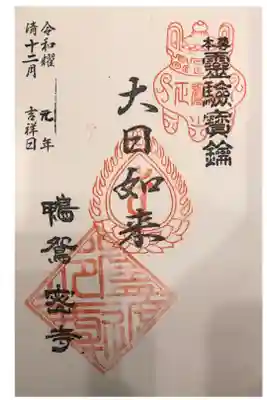 本尊
靈驗寶鑰
大日如来
鴨鴛寺
令和 元年
十二月 吉祥日